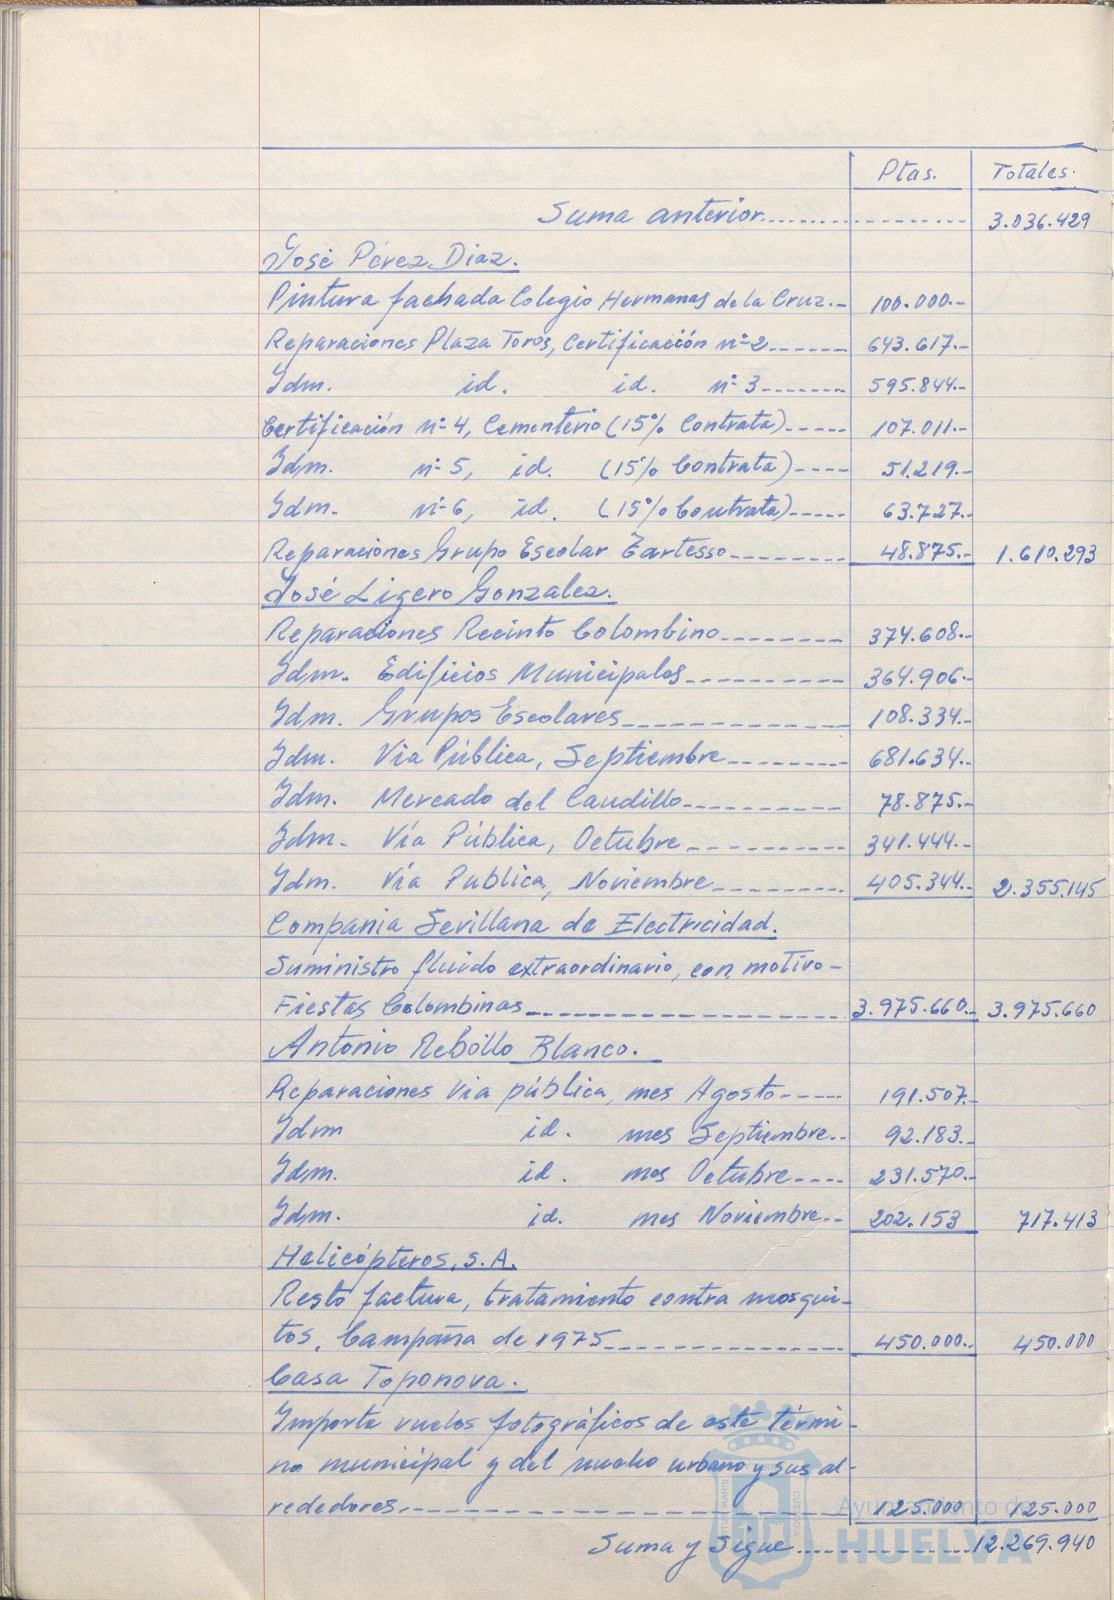 Ptas. Totales.
Suma anterior.................... 3.036.429
José Pérez Diaz.
Pintura fachada Colegio Hermanas de la Cruz.- 100.000.-
Reparaciones Plaza Toros, Certificación nº 2------ 643.617.-
Idm. id. id. nº 3------- 595.844.-
Certificación nº 4, Cementerio (15% Contrata)----- 107.011.-
Idm. nº 5, id. (15% Contrata)---- 51.219.-
Idm. nº 6, id. (15% Contrata)----- 63.727.-
Reparaciones Grupo Escolar Tartesso-------- 48.875.- 1.610.293
José Ligero Gonzalez.
Reparaciones Recinto Colombino-------- 374.608.-
Idm. Edificios Municipales---------- 364.906.-
Idm. Grupos Escolares-------------- 108.334.-
Idm. Via Pública, Septiembre-------- 681.634.-
Idm. Mercado del Caudillo---------- 78.875.-
Idm. Vía Pública, Octubre---------- 341.444.-
Idm. Vía Publica, Noviembre-------- 405.344.- 2.355.145
Compania Sevillana de Electricidad.
Suministro fluido extraordinario, con motivo-
Fiestas Colombinas-------------------- 3.975.660.- 3.975.660
Antonio Rebollo Blanco.
Reparaciones Via pública, mes Agosto----- 191.507.-
Idm id. mes Septiembre.-- 92.183.-
Idm. id. mes Octubre---- 231.570.-
Idm. id. mes Noviembre-- 202.153 717.413
Helicópteros, S.A.
Resto factura, tratamiento contra mosqui-
tos, Campaña de 1975--------------- 450.000.- 450.000
Casa Toponova.
Importe vuelos fotográficos de este térmi-
no municipal y del nucleo urbano y sus al-
rededores------------------------ 125.000 125.000
Suma y Sigue.................. 12.269.940
Ayuntamiento de
HUELVA